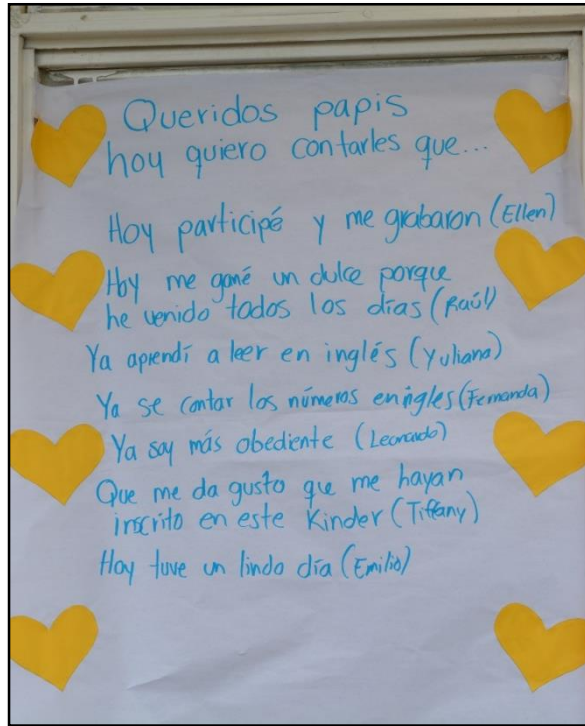 Queridos papis
hoy quiero contarles que...
Hoy participé y me grabaron (Ellen)
Hoy me gané un dulce porque
he venido todos los días (Raúl)
Ya aprendí a leer en inglés (Yuliana)
Ya se contar los números en ingles (Fernanda)
Ya soy más obediente (Leonardo)
Que me da gusto que me hayan
inscrito en este Kinder (Tiffany)
Hoy tuve un lindo día (Emilio)